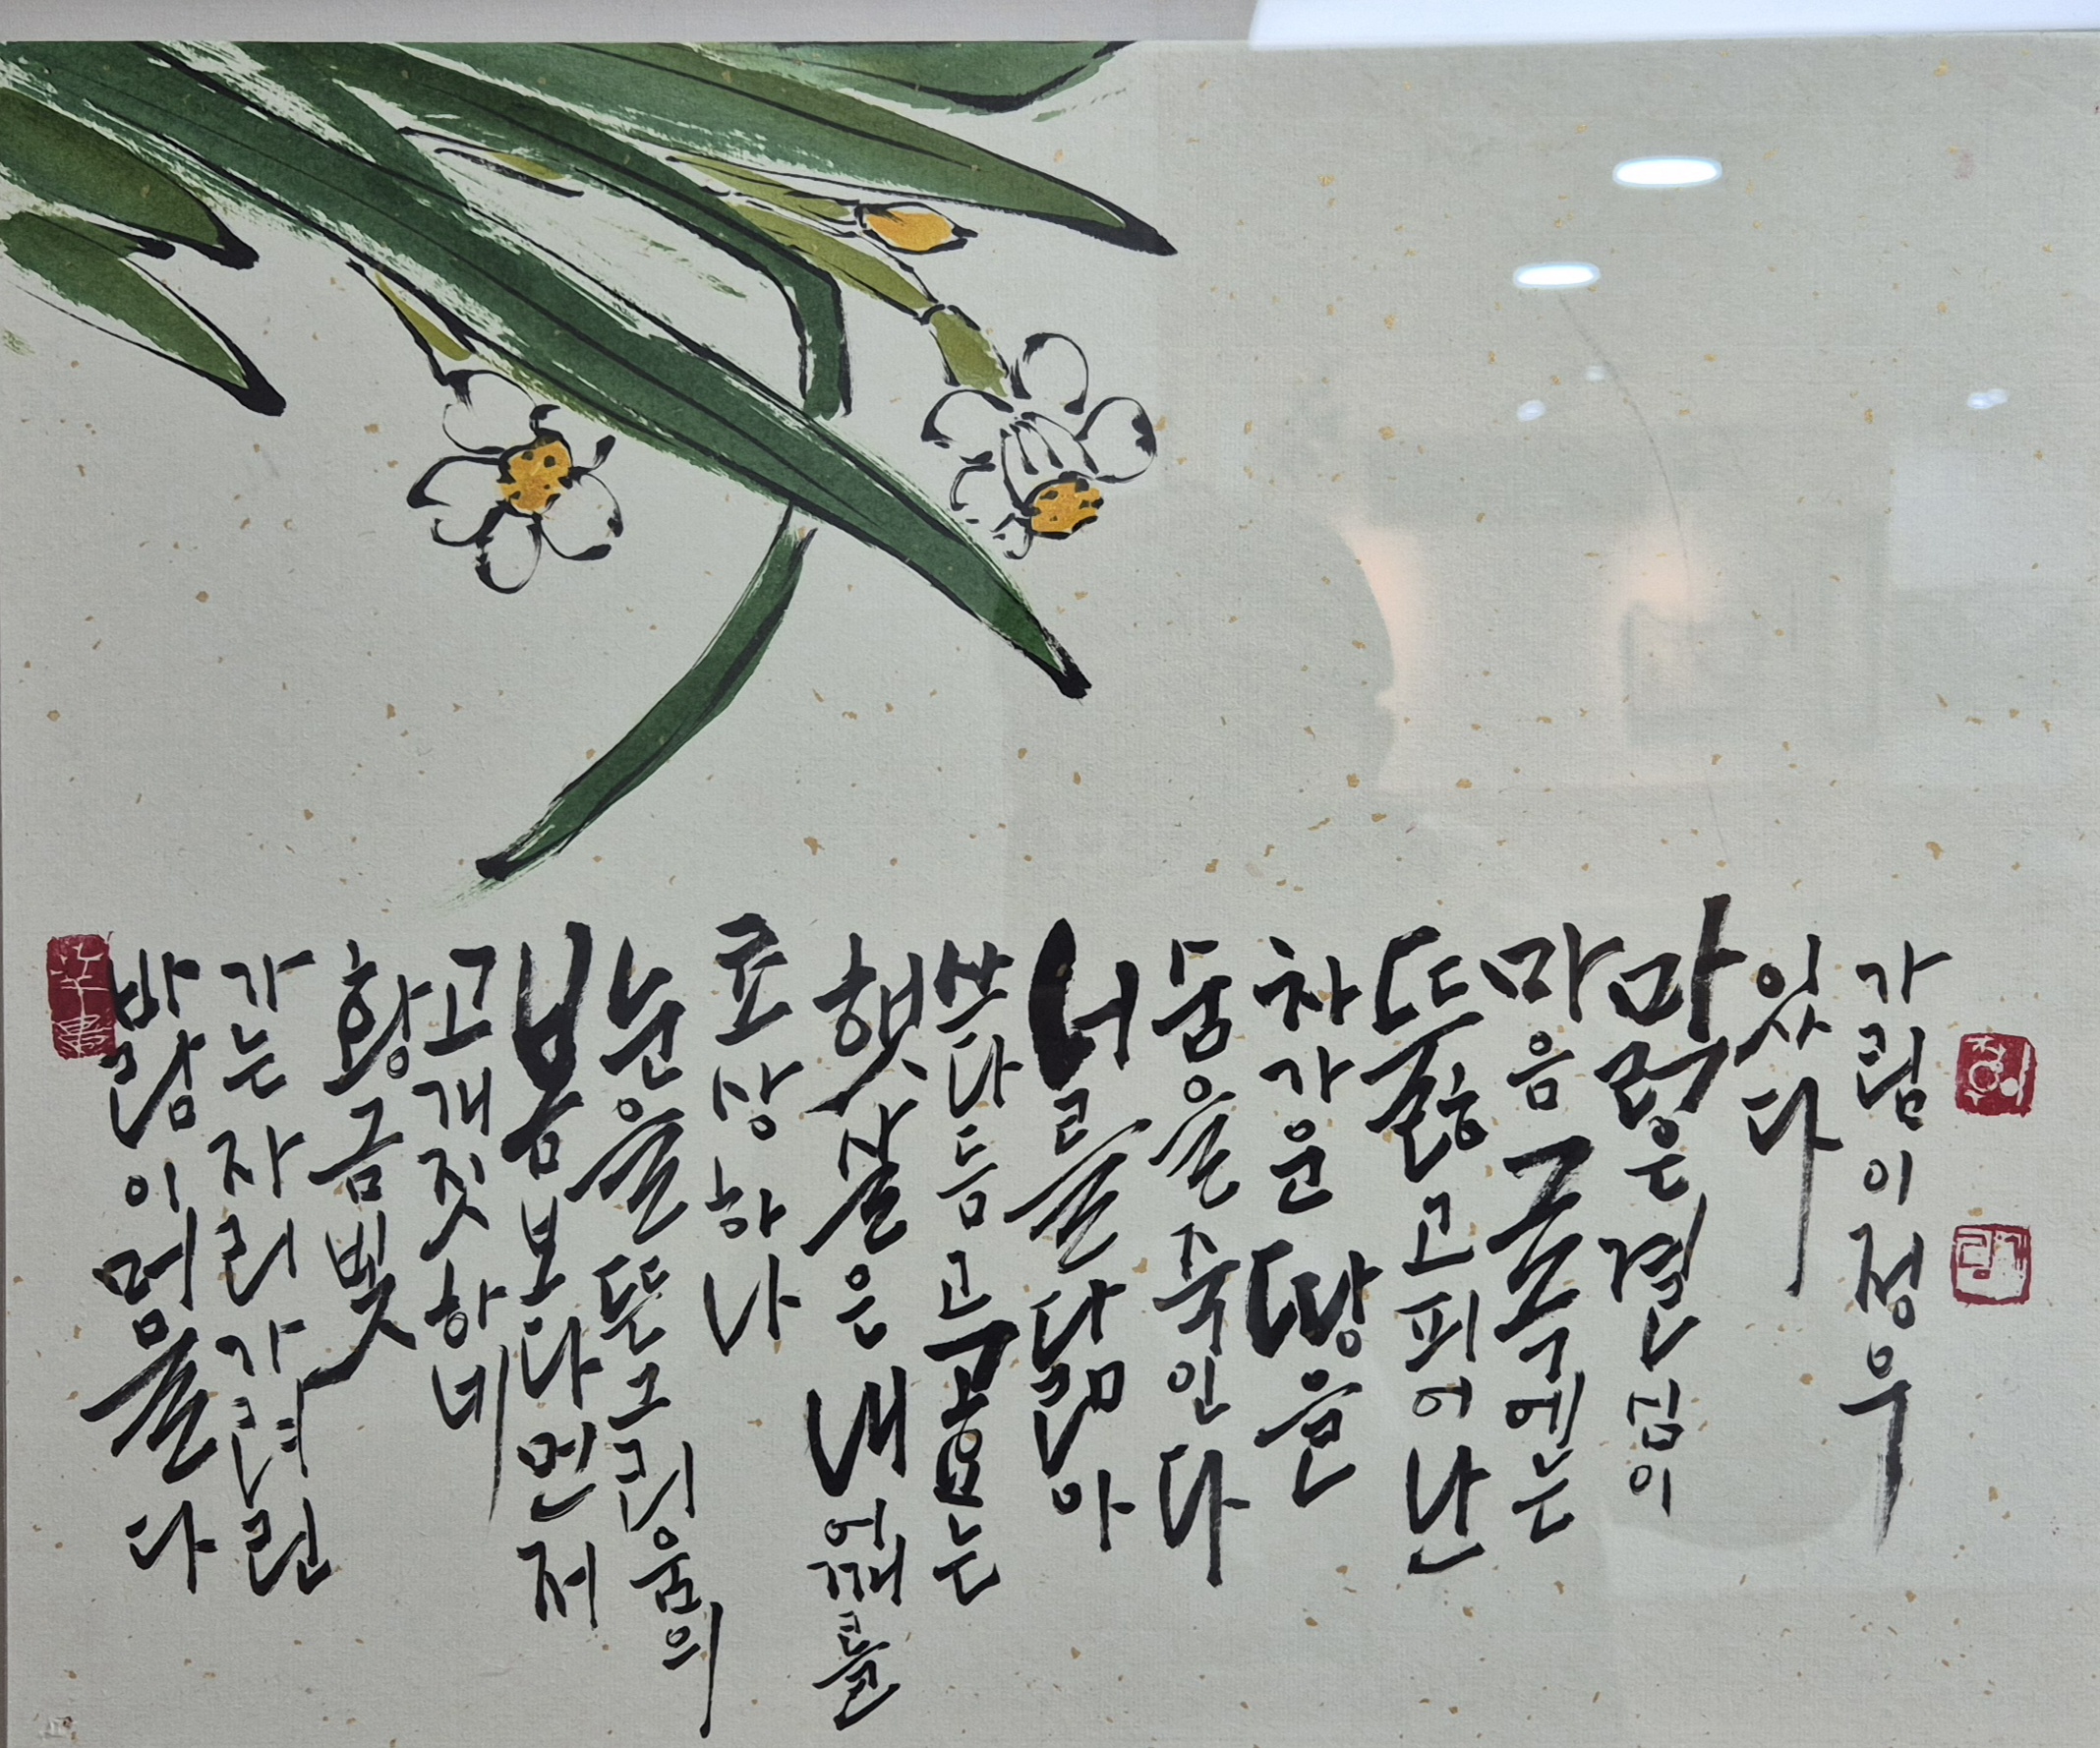 바람이 머물다
가는 자리 가녀린
황금빛
고개짓하네
봄보다 먼저
눈을 뜬 그리움의
초상하나
햇살은 내 어깨를
쓰다듬고 고요는
너를 닮아
숨을 죽인다
차가운 땅을
뚫고 피어난
마음 그 속에는
맑은 결심이
있다
가림 이정우